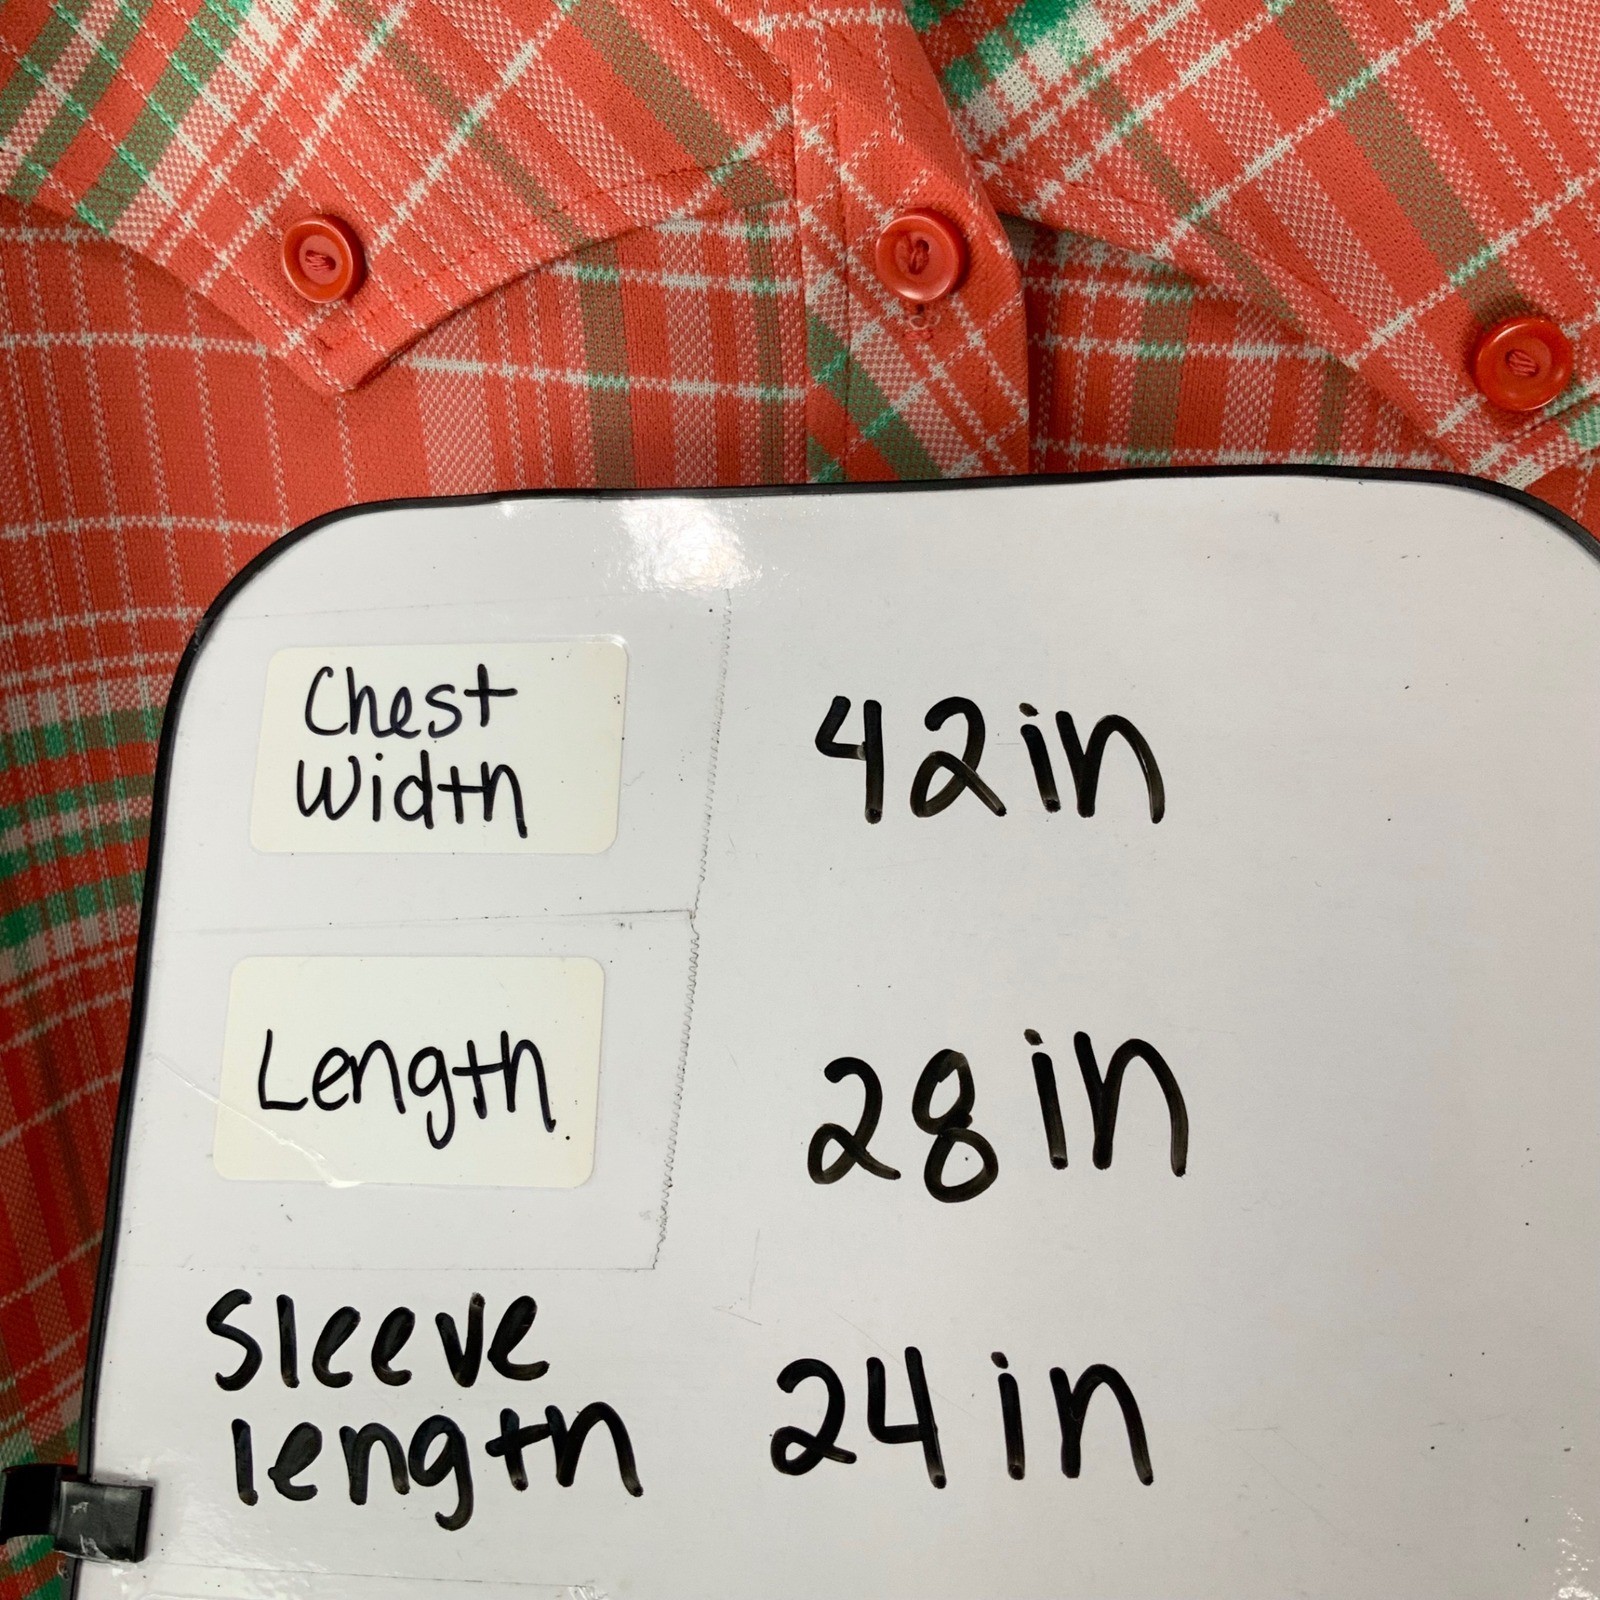 Chest
Width
42in
Length
28in
Sleeve
length
24in